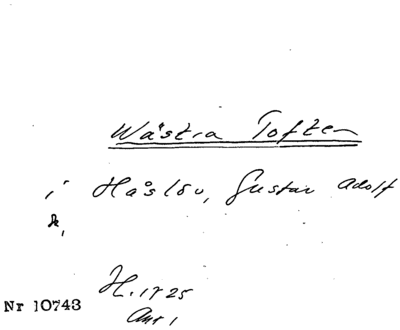 Wästra Toften
i Håslöv, Gustav Adolf
h,
H. 1725
Nr 10743